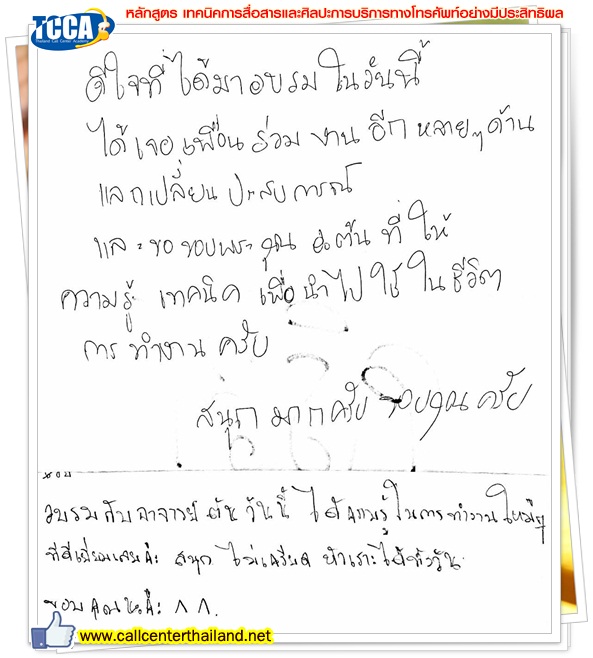 TCCA
Thailand Call Center Academy
หลักสูตร เทคนิคการสื่อสารและศิลปะการบริการทางโทรศัพท์อย่างมีประสิทธิผล
ดีใจที่ได้มาอบรมในวันนี้
ได้เจอเพื่อนร่วมงานอีกหลายๆด้าน
แลกเปลี่ยนประสบการณ์
และขอขอบพระคุณ อ.ต้น ที่ให้
ความรู้ เทคนิค เพื่อนำไปใช้ในชีวิต
การทำงานครับ
สนุกมากครับ ขอบคุณครับ
อบรมกับอาจารย์ต้น วันนี้ ได้ความรู้ในการทำงานใหม่ๆ
ที่ดีเยี่ยมเลยค่ะ สนุก ไม่เครียด หัวเราะได้ทั้งวัน
ขอบคุณค่ะ ^ ^.
www.callcenterthailand.net